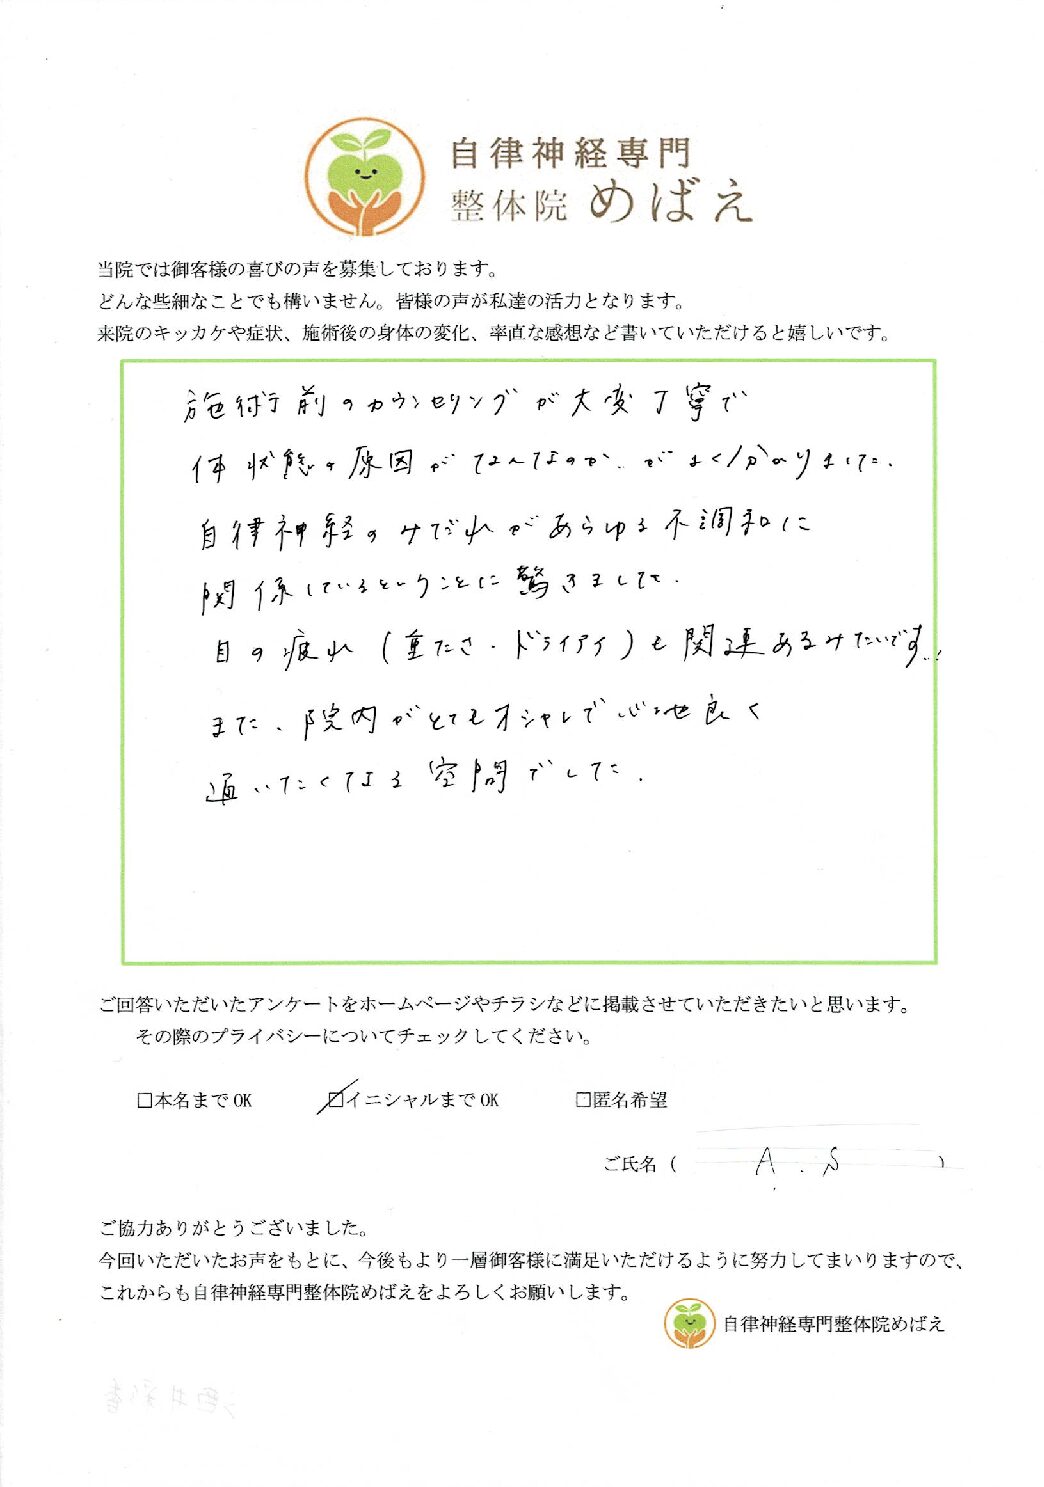 自律神経専門
整体院 めばえ
当院では御客様の喜びの声を募集しております。
どんな些細なことでも構いません。皆様の声が私達の活力となります。
来院のキッカケや症状、施術後の身体の変化、率直な感想など書いていただけると嬉しいです。
施術前のカウンセリングが大変丁寧で
体状態の原因がなんなのか、がよく分かりました。
自律神経のみだれがあらゆる不調和に
関係しているということに驚きました。
目の疲れ(重たさ・ドライアイ)も関連あるみたいです。
また、院内がとてもオシャレで心地良く
通いたくなる空間でした。
ご回答いただいたアンケートをホームページやチラシなどに掲載させていただきたいと思います。
その際のプライバシーについてチェックしてください。
□本名までOK ☑イニシャルまでOK □匿名希望
ご氏名( A.S )
ご協力ありがとうございました。
今回いただいたお声をもとに、今後もより一層御客様に満足いただけるように努力してまいりますので、
これからも自律神経専門整体院めばえをよろしくお願いします。
自律神経専門整体院めばえ